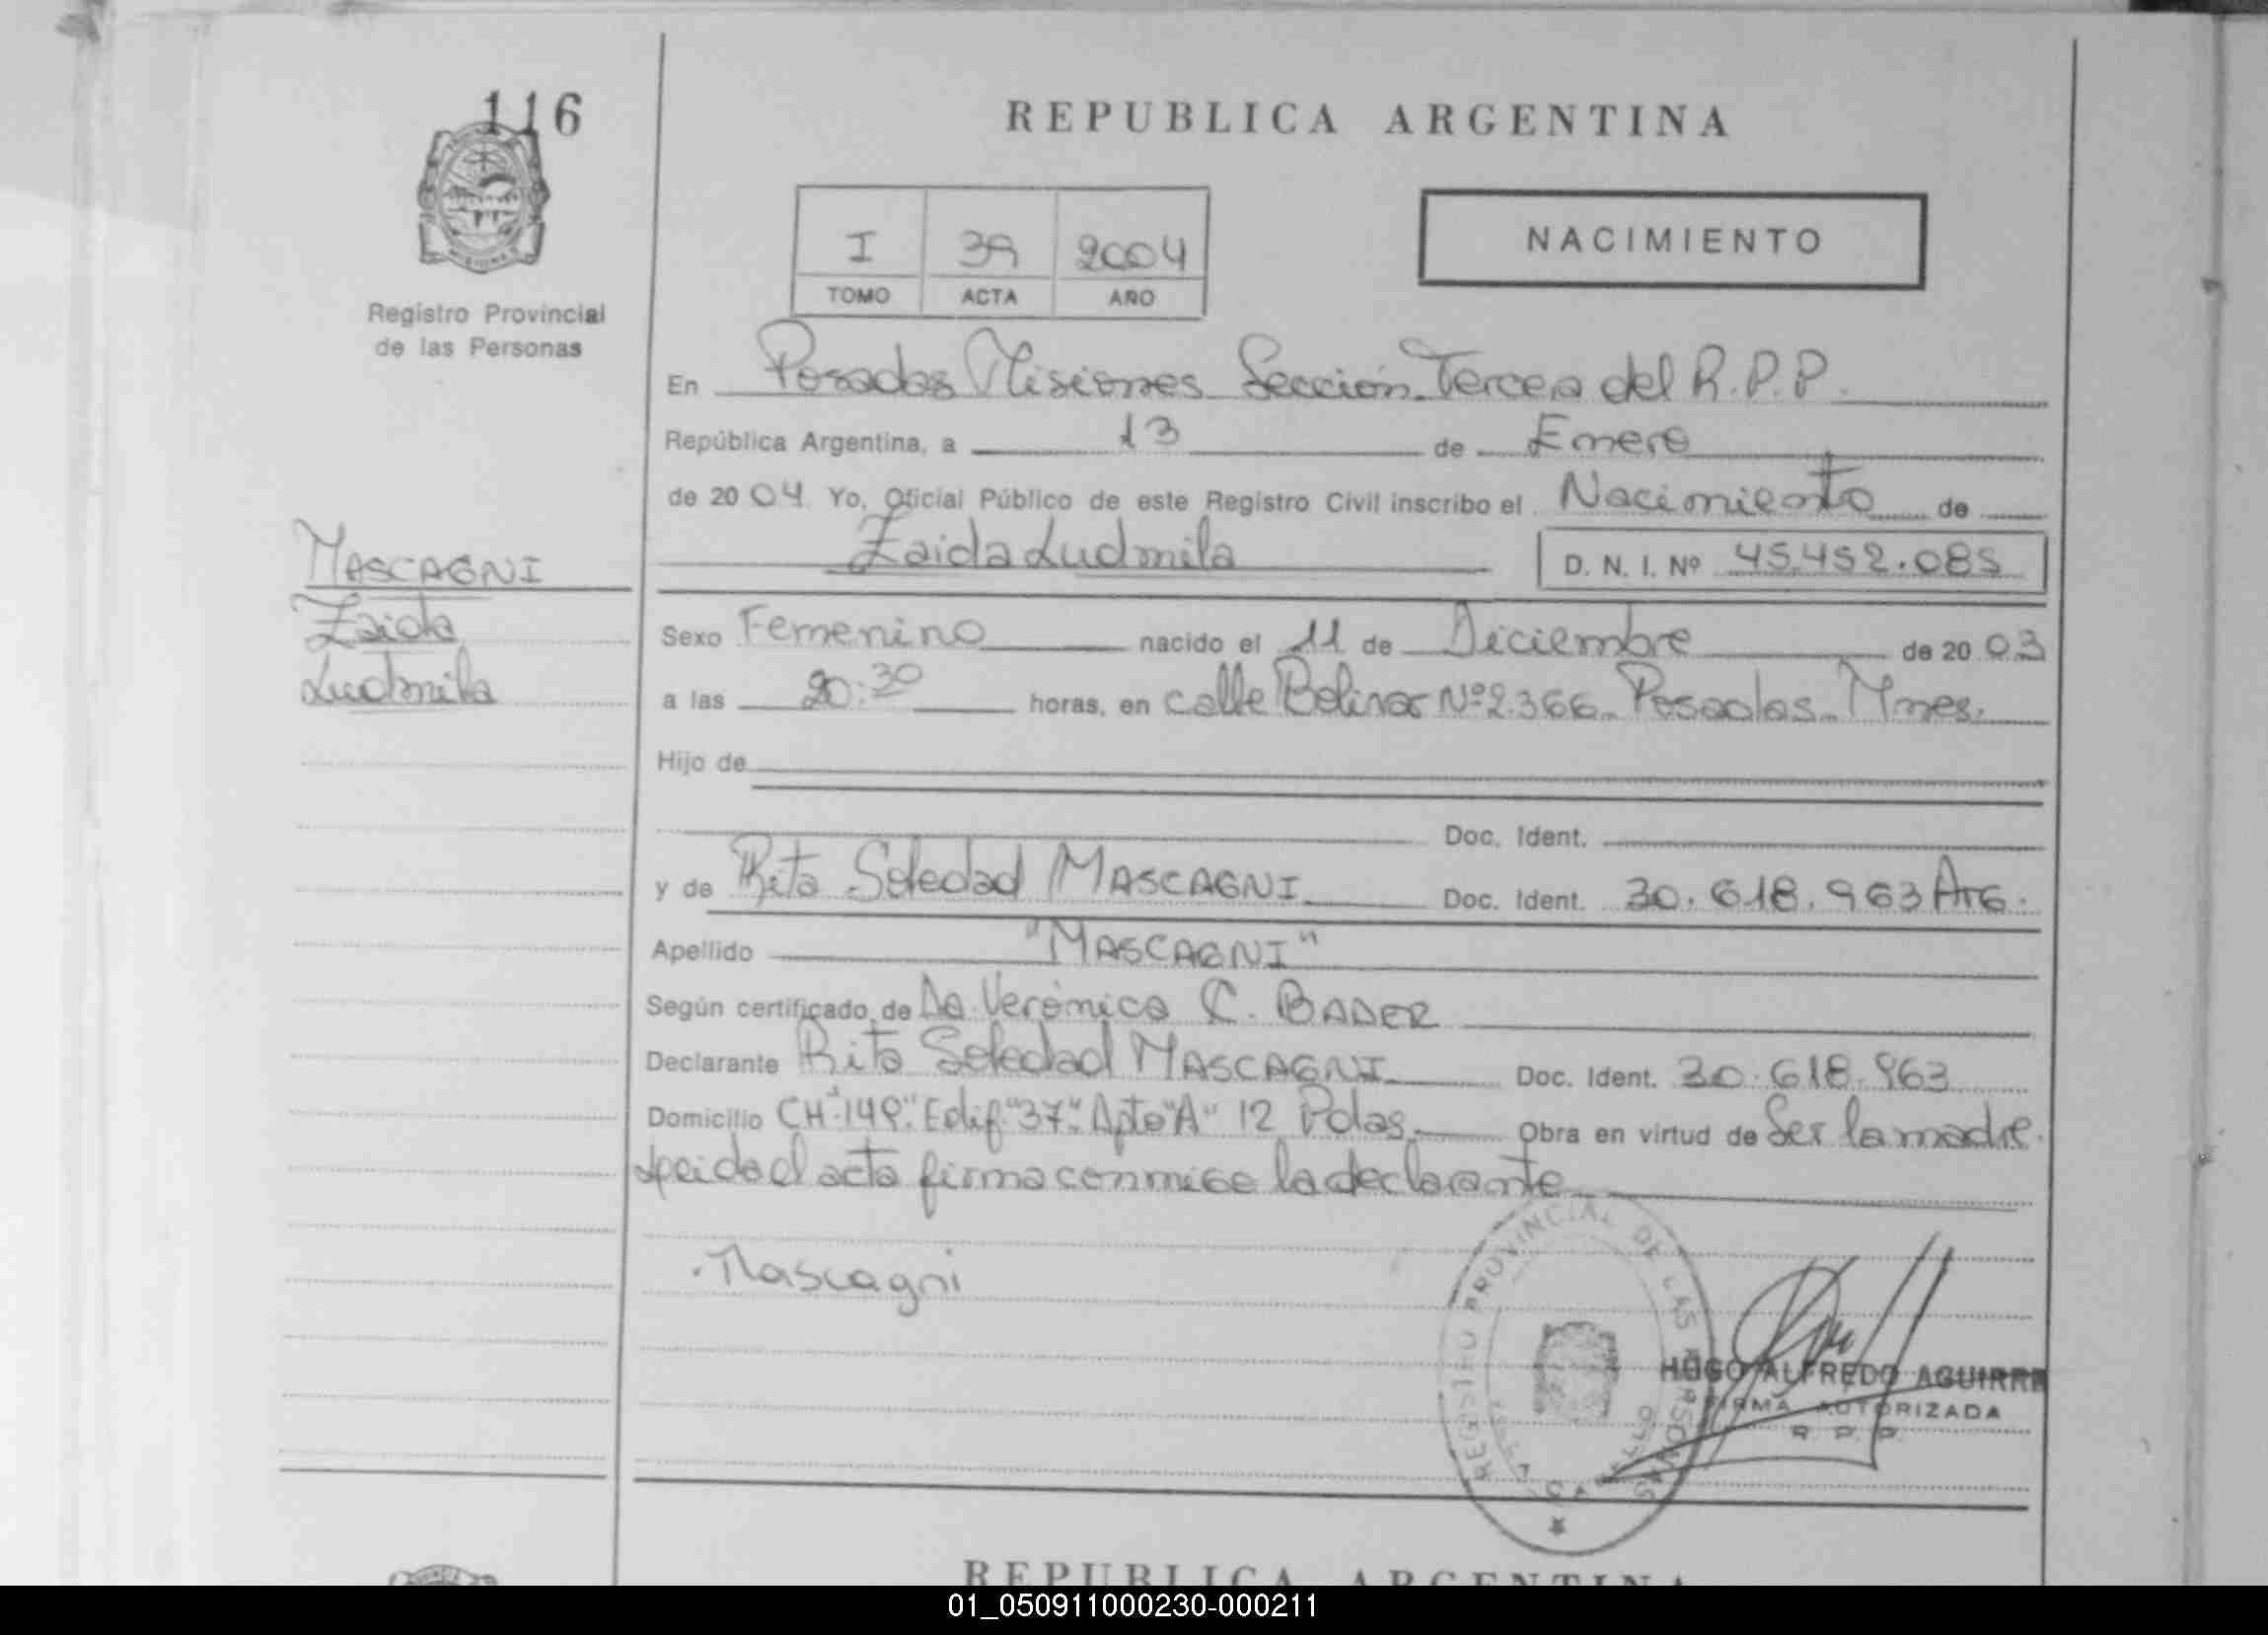 116
REPUBLICA ARGENTINA
NACIMIENTO
I 39 2004
TOMO ACTA AÑO
Registro Provincial
de las Personas
En Posadas Misiones Sección Tercera del R.P.P.
República Argentina, a 13 de Enero
de 2004 Yo, Oficial Público de este Registro Civil inscribo el Nacimiento de
Zaida Ludmila D. N. I. Nº 45.452.085
MASCAGNI
Zaida
Ludmila
Sexo Femenino nacido el 11 de Diciembre de 2003
a las 20:30 horas, en calle Bolivar Nº 2.366 Posadas Mnes.
Hijo de
Doc. Ident.
y de Rita Soledad MASCAGNI Doc. Ident. 30.618.963 Arg.
Apellido "MASCAGNI"
Según certificado de Da Verónica C. BADER
Declarante Rita Soledad MASCAGNI Doc. Ident. 30.618.963
Domicilio CH-149 Edif "37" Apto "A" 12 Pdas. Obra en virtud de Ser la madre
Leida el acta firma conmigo la declarante
Mascagni
REGISTRO PROVINCIAL DE LAS PERSONAS
HUGO ALFREDO AGUIRRE
FIRMA AUTORIZADA
R. P. P.
REPUBLICA ARGENTINA
01_050911000230-000211